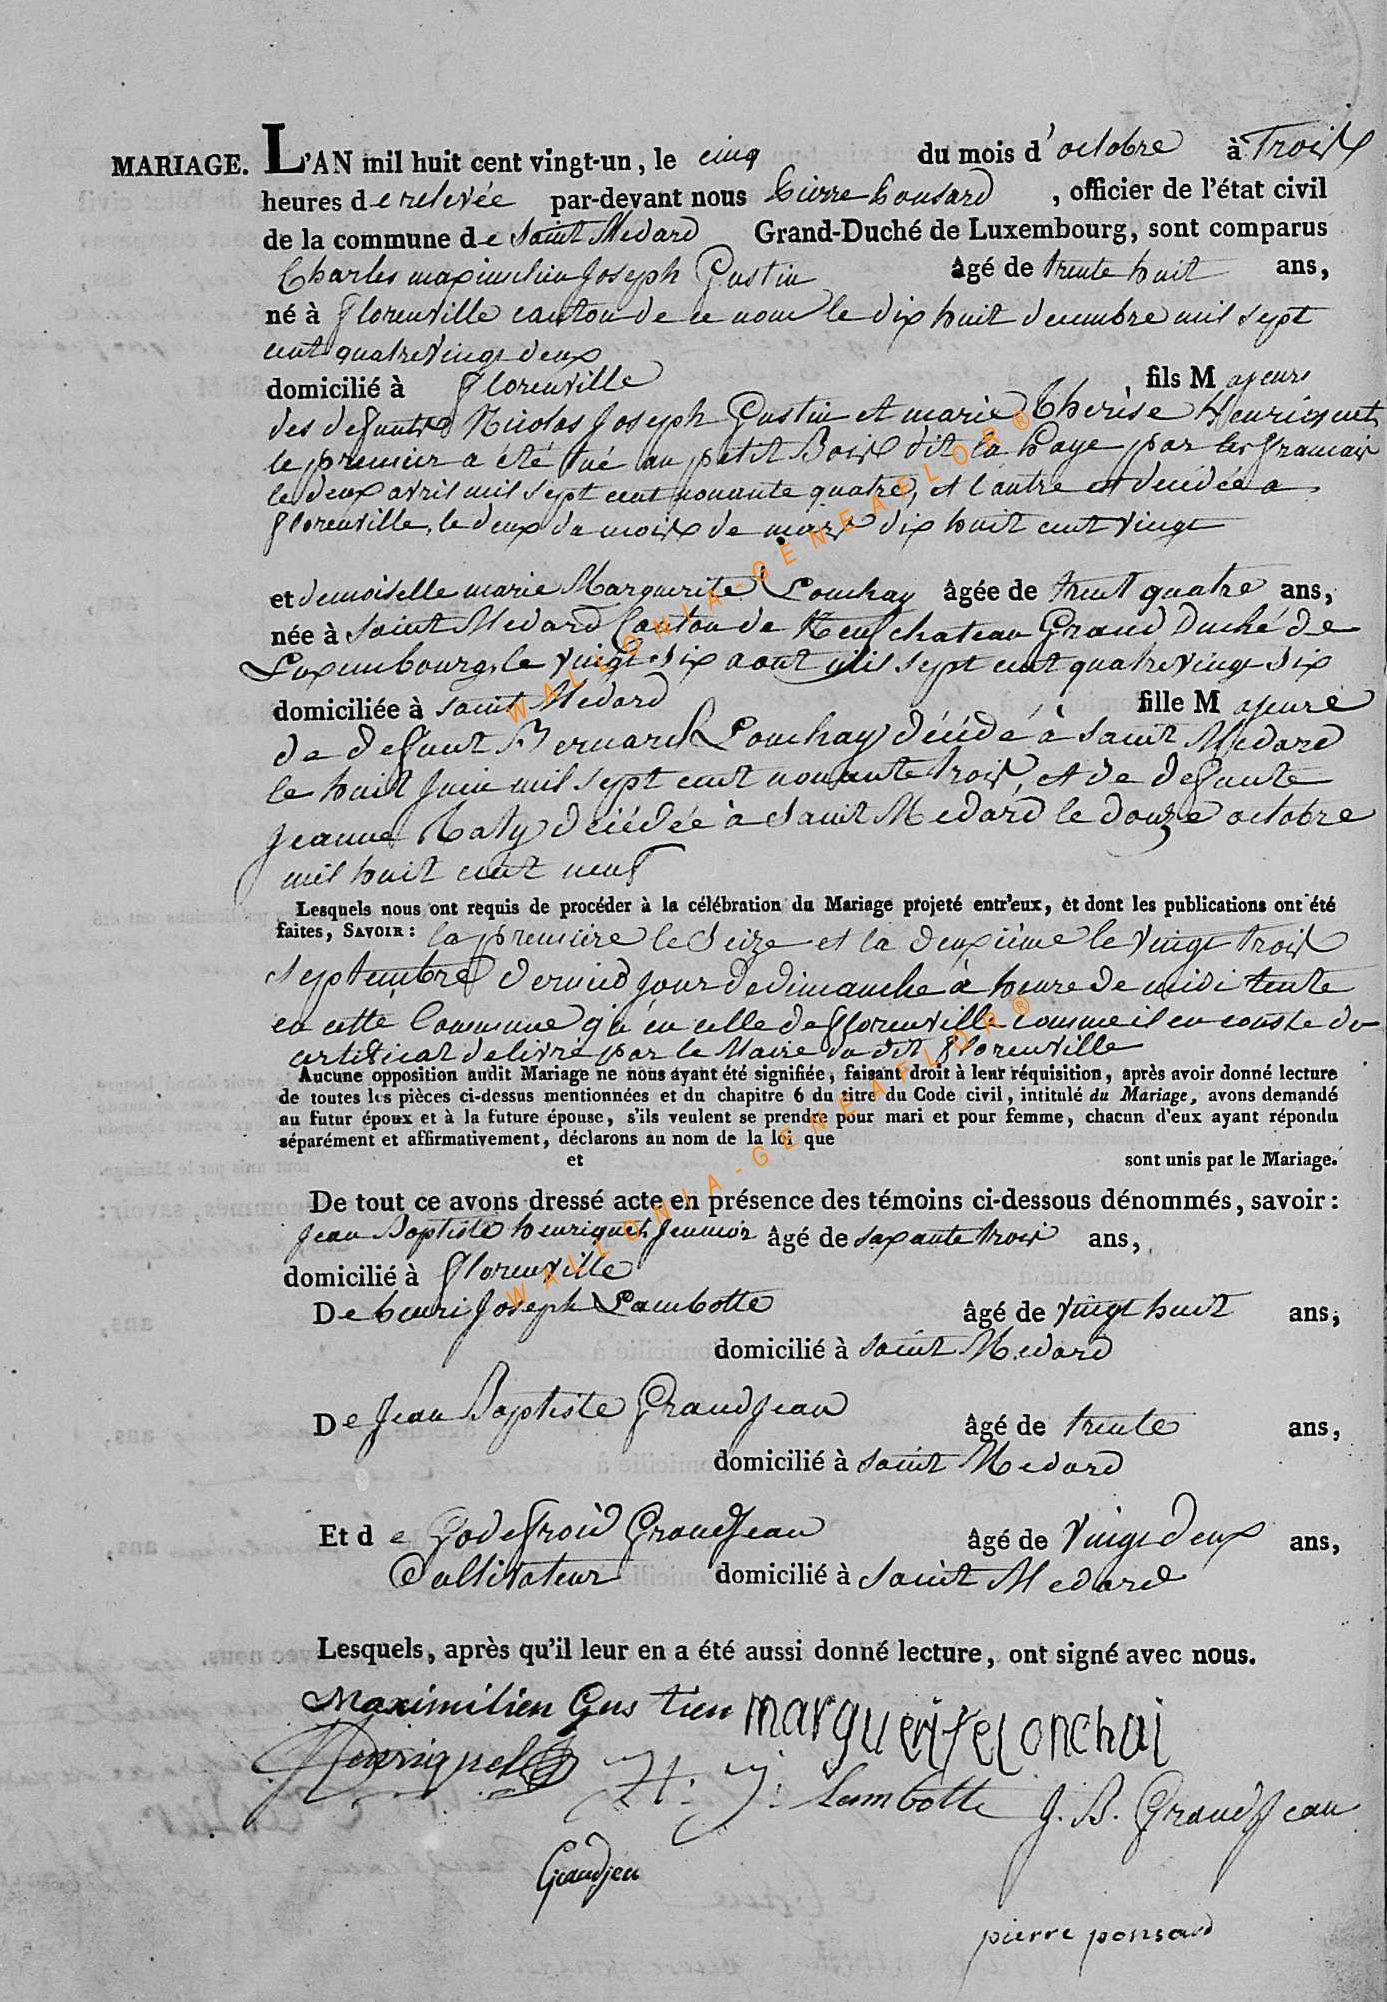 MARIAGE. L'AN mil huit cent vingt-un, le cinq du mois d'octobre à Troix
heures de relevée par-devant nous Pierre Ponsard, officier de l'état civil
de la commune de Saint Medard Grand-Duché de Luxembourg, sont comparus
Charles maximilien Joseph Gustin âgé de trente huit ans,
né à Florenville canton de ce nom le dix huit decembre mil sept
cent quatrevingt deux
domicilié à Florenville, fils Majeure
des defunts Nicolas Joseph Gustin et marie Therèse Henriquet,
le premier a été tué au petit Boix dit la haye par les francaix
le deux avril mil sept cent nonante quatre, et l'autre est decédée a
florenville, le deux du moix de marx dix huit cent vingt
et demoiselle marie Marguerite Lonchay âgée de trent quatre ans,
née à Saint Medard Canton de Neufchateau Grand Duché de
Luxembourg, le vingt six aout mil sept cent quatrevingt six
domiciliée à Saint Medard fille Majeure
de defunt Bernard Lonchay décédé à Saint Medard
le huit Juin mil sept cent nonante troix, et de defunte
Jeanne Raty décédée à Saint Medard le douze octobre
mil huit cent neuf
Lesquels nous ont requis de procéder à la célébration du Mariage projeté entr'eux, et dont les publications ont été
faites, SAVOIR : la première le Seize et la deuxième le vingt troix
Septembre dernier jour de dimanche à heure de midi tente
en cette Commune qu'en celle de Florenville comme il en conste du
certificat delivré par le Maire du dit florenville
Aucune opposition audit Mariage ne nous ayant été signifiée, faisant droit à leur réquisition, après avoir donné lecture
de toutes les pièces ci-dessus mentionnées et du chapitre 6 du titre du Code civil, intitulé du Mariage, avons demandé
au futur époux et à la future épouse, s'ils veulent se prendre pour mari et pour femme, chacun d'eux ayant répondu
séparément et affirmativement, déclarons au nom de la loi que
et sont unis par le Mariage.
De tout ce avons dressé acte en présence des témoins ci-dessous dénommés, savoir :
Jean Baptiste henriquet, Junior âgé de soxante troix ans,
domicilié à Florenville
De henri Joseph Lambotte âgé de vingt huit ans,
domicilié à Saint Medard
De Jean Baptiste GrandJean âgé de trente ans,
domicilié à Saint Medard
Et de Godefroid GrandJean âgé de vingt deux ans,
Cultivateur domicilié à Saint Medard
Lesquels, après qu'il leur en a été aussi donné lecture, ont signé avec nous.
Maximilien Gustien marguerite Lonchai
Henriquet H. J. Lambotte J. B. GrandJean
Grandjen
pierre ponsard
WALLONIA-GENEAFLOR®
WALLONIA-GENEAFLOR®